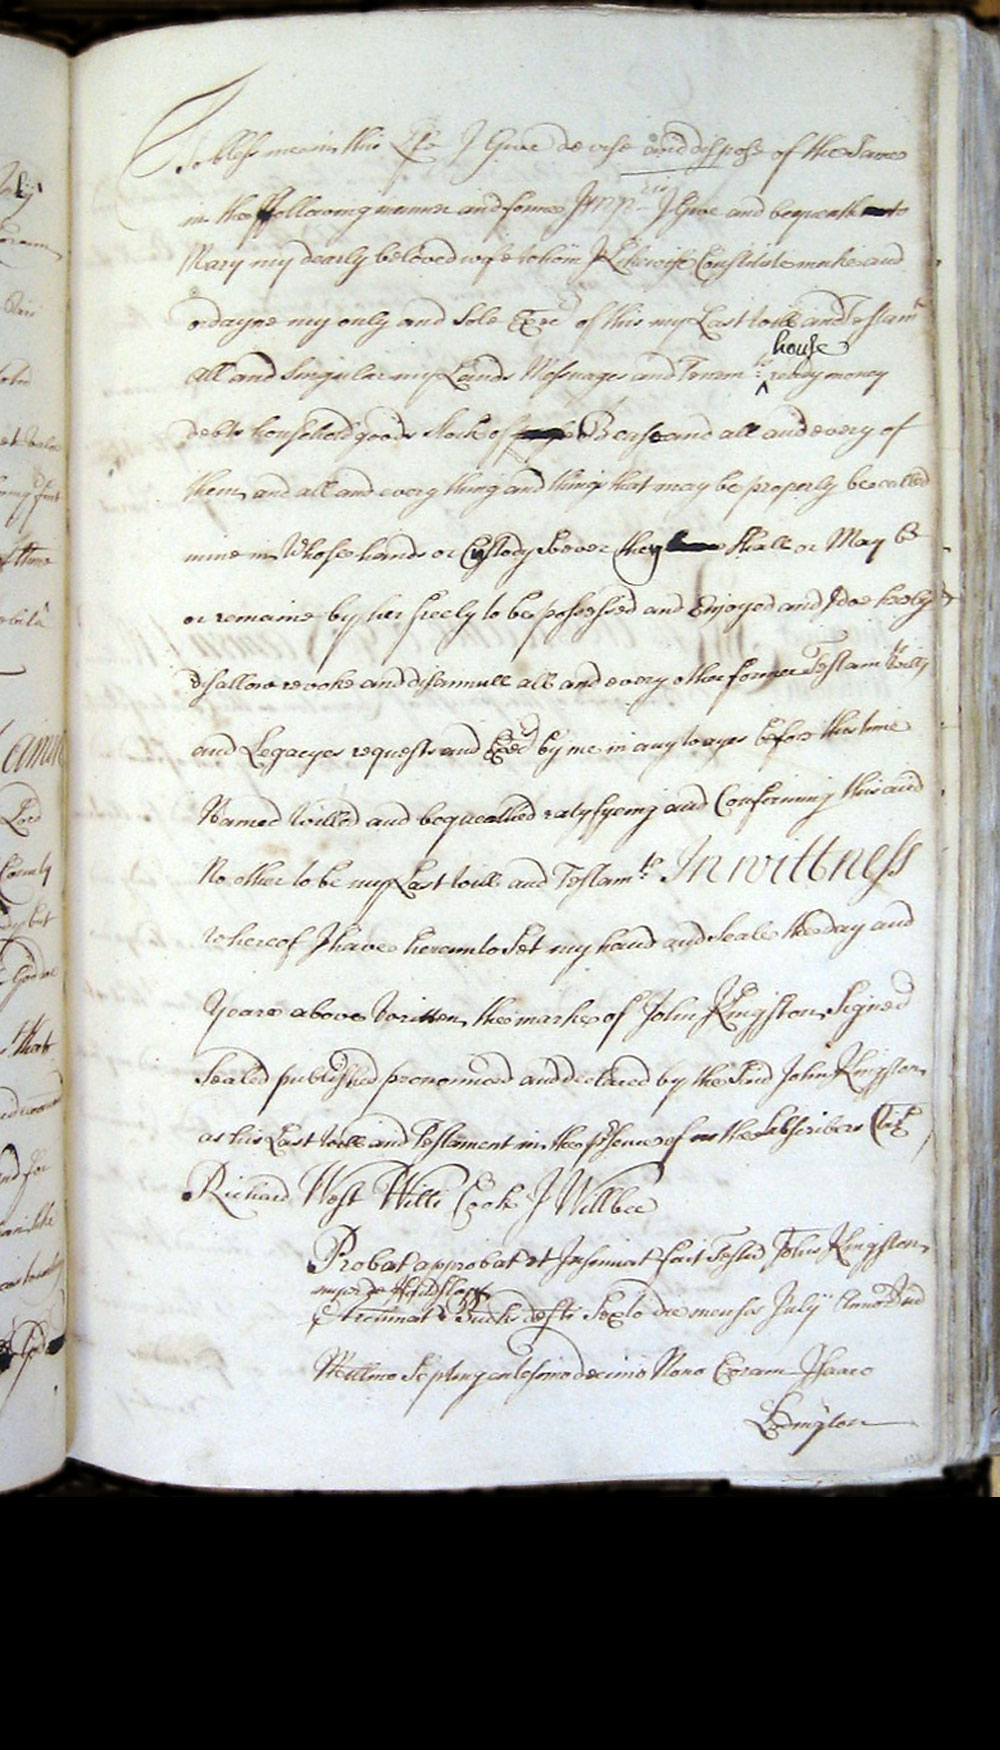 To bless me in this Life I Give devise and dispose of the Same
in the ffollowing manner and forme Imp^ris I Give and bequeath to
Mary my dearly beloved wife whom I Likewise Constitute make and
ordayne my only and Sole Exec^r of this my Last will and Testam^t
house
All and Singular my Lands Messuages and Tenem^ts ready money
debts household goods Stock of Beasts and all and every of
them and all and every thing and things that may be properly be called
mine in Whose hands or Custody soever they shall or May be
or remaine by her freely to be possessed and Enjoyed and I doe hereby
disallow revoke and disannull all and every other former Testam^ts Wills
and Legacyes requests and Exec^rs by me in any wayes before this time
Named Willed and bequeathed ratyfyeing and Confirming this and
No other to be my Last will and Testam^t: In wittness
whereof I have hereunto Set my hand and Seale the day and
Yeare above Written the marke of John Kingston Signed
Sealed published pronounced and declared by the Said John Kingston
as his Last Will and Testament in the p^rsence of us the Subscribers Viz^t
Richard West Will: Cook J Willbee
Probat approbat et Insinuat fuit Testum John Kingston
nuper de
Archinat Bucks defti Sexto die mensis July Anno Dni
Millmo Septingentesimo decimo Nono Coram Isaaco
Lodington